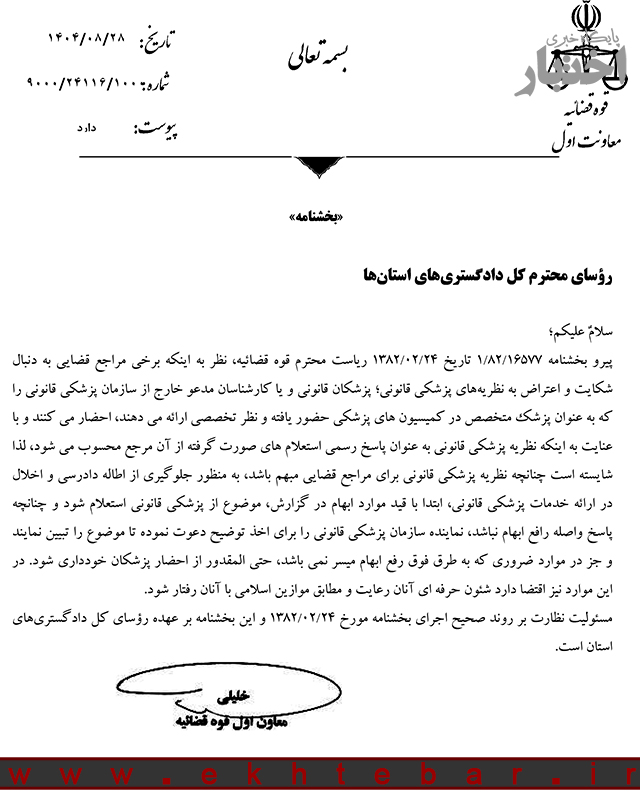 پایگاه خبری
اختبار
قوه قضائیه
معاونت اول
بسمه تعالی
تاریخ: ۱۴۰۴/۰۸/۲۸
شماره: ۹۰۰۰/۲۴۱۱۶/۱۰۰
پیوست: دارد
«بخشنامه»
رؤسای محترم کل دادگستری‌های استان‌ها
سلامٌ علیکم؛
پیرو بخشنامه ۱/۸۲/۱۶۵۷۷ تاریخ ۱۳۸۲/۰۲/۲۴ ریاست محترم قوه قضائیه، نظر به اینکه برخی مراجع قضایی به دنبال
شکایت و اعتراض به نظریه‌های پزشکی قانونی؛ پزشکان قانونی و یا کارشناسان مدعو خارج از سازمان پزشکی قانونی را
که به عنوان پزشک متخصص در کمیسیون های پزشکی حضور یافته و نظر تخصصی ارائه می دهند، احضار می کنند و با
عنایت به اینکه نظریه پزشکی قانونی به عنوان پاسخ رسمی استعلام های صورت گرفته از آن مرجع محسوب می شود، لذا
شایسته است چنانچه نظریه پزشکی قانونی برای مراجع قضایی مبهم باشد، به منظور جلوگیری از اطاله دادرسی و اخلال
در ارائه خدمات پزشکی قانونی، ابتدا با قید موارد ابهام در گزارش، موضوع از پزشکی قانونی استعلام شود و چنانچه
پاسخ واصله رافع ابهام نباشد، نماینده سازمان پزشکی قانونی را برای اخذ توضیح دعوت نموده تا موضوع را تبیین نمایند
و جز در موارد ضروری که به طرق فوق رفع ابهام میسر نمی باشد، حتی المقدور از احضار پزشکان خودداری شود. در
این موارد نیز اقتضا دارد شئون حرفه ای آنان رعایت و مطابق موازین اسلامی با آنان رفتار شود.
مسئولیت نظارت بر روند صحیح اجرای بخشنامه مورخ ۱۳۸۲/۰۲/۲۴ و این بخشنامه بر عهده رؤسای کل دادگستری‌های
استان است.
خلیلی
معاون اول قوه قضائیه
www.ekhtebar.ir